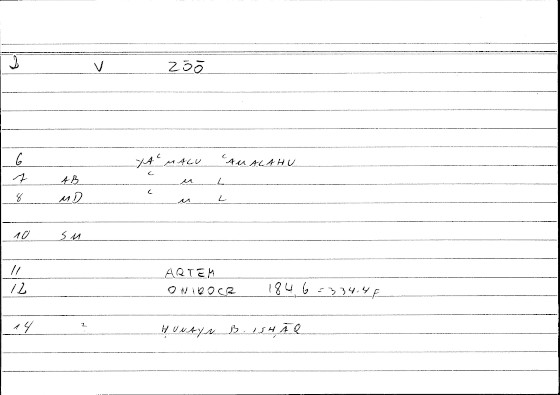 D V 200
6 YAʿMALU ʿAMALAHU
7 AB ʿ M L
8 MD ʿ M L
10 SM
11 ARTEM
12 ONIROCR 184,6 = 334.4 F
14 2 ḤUNAYN B. ISḤĀQ